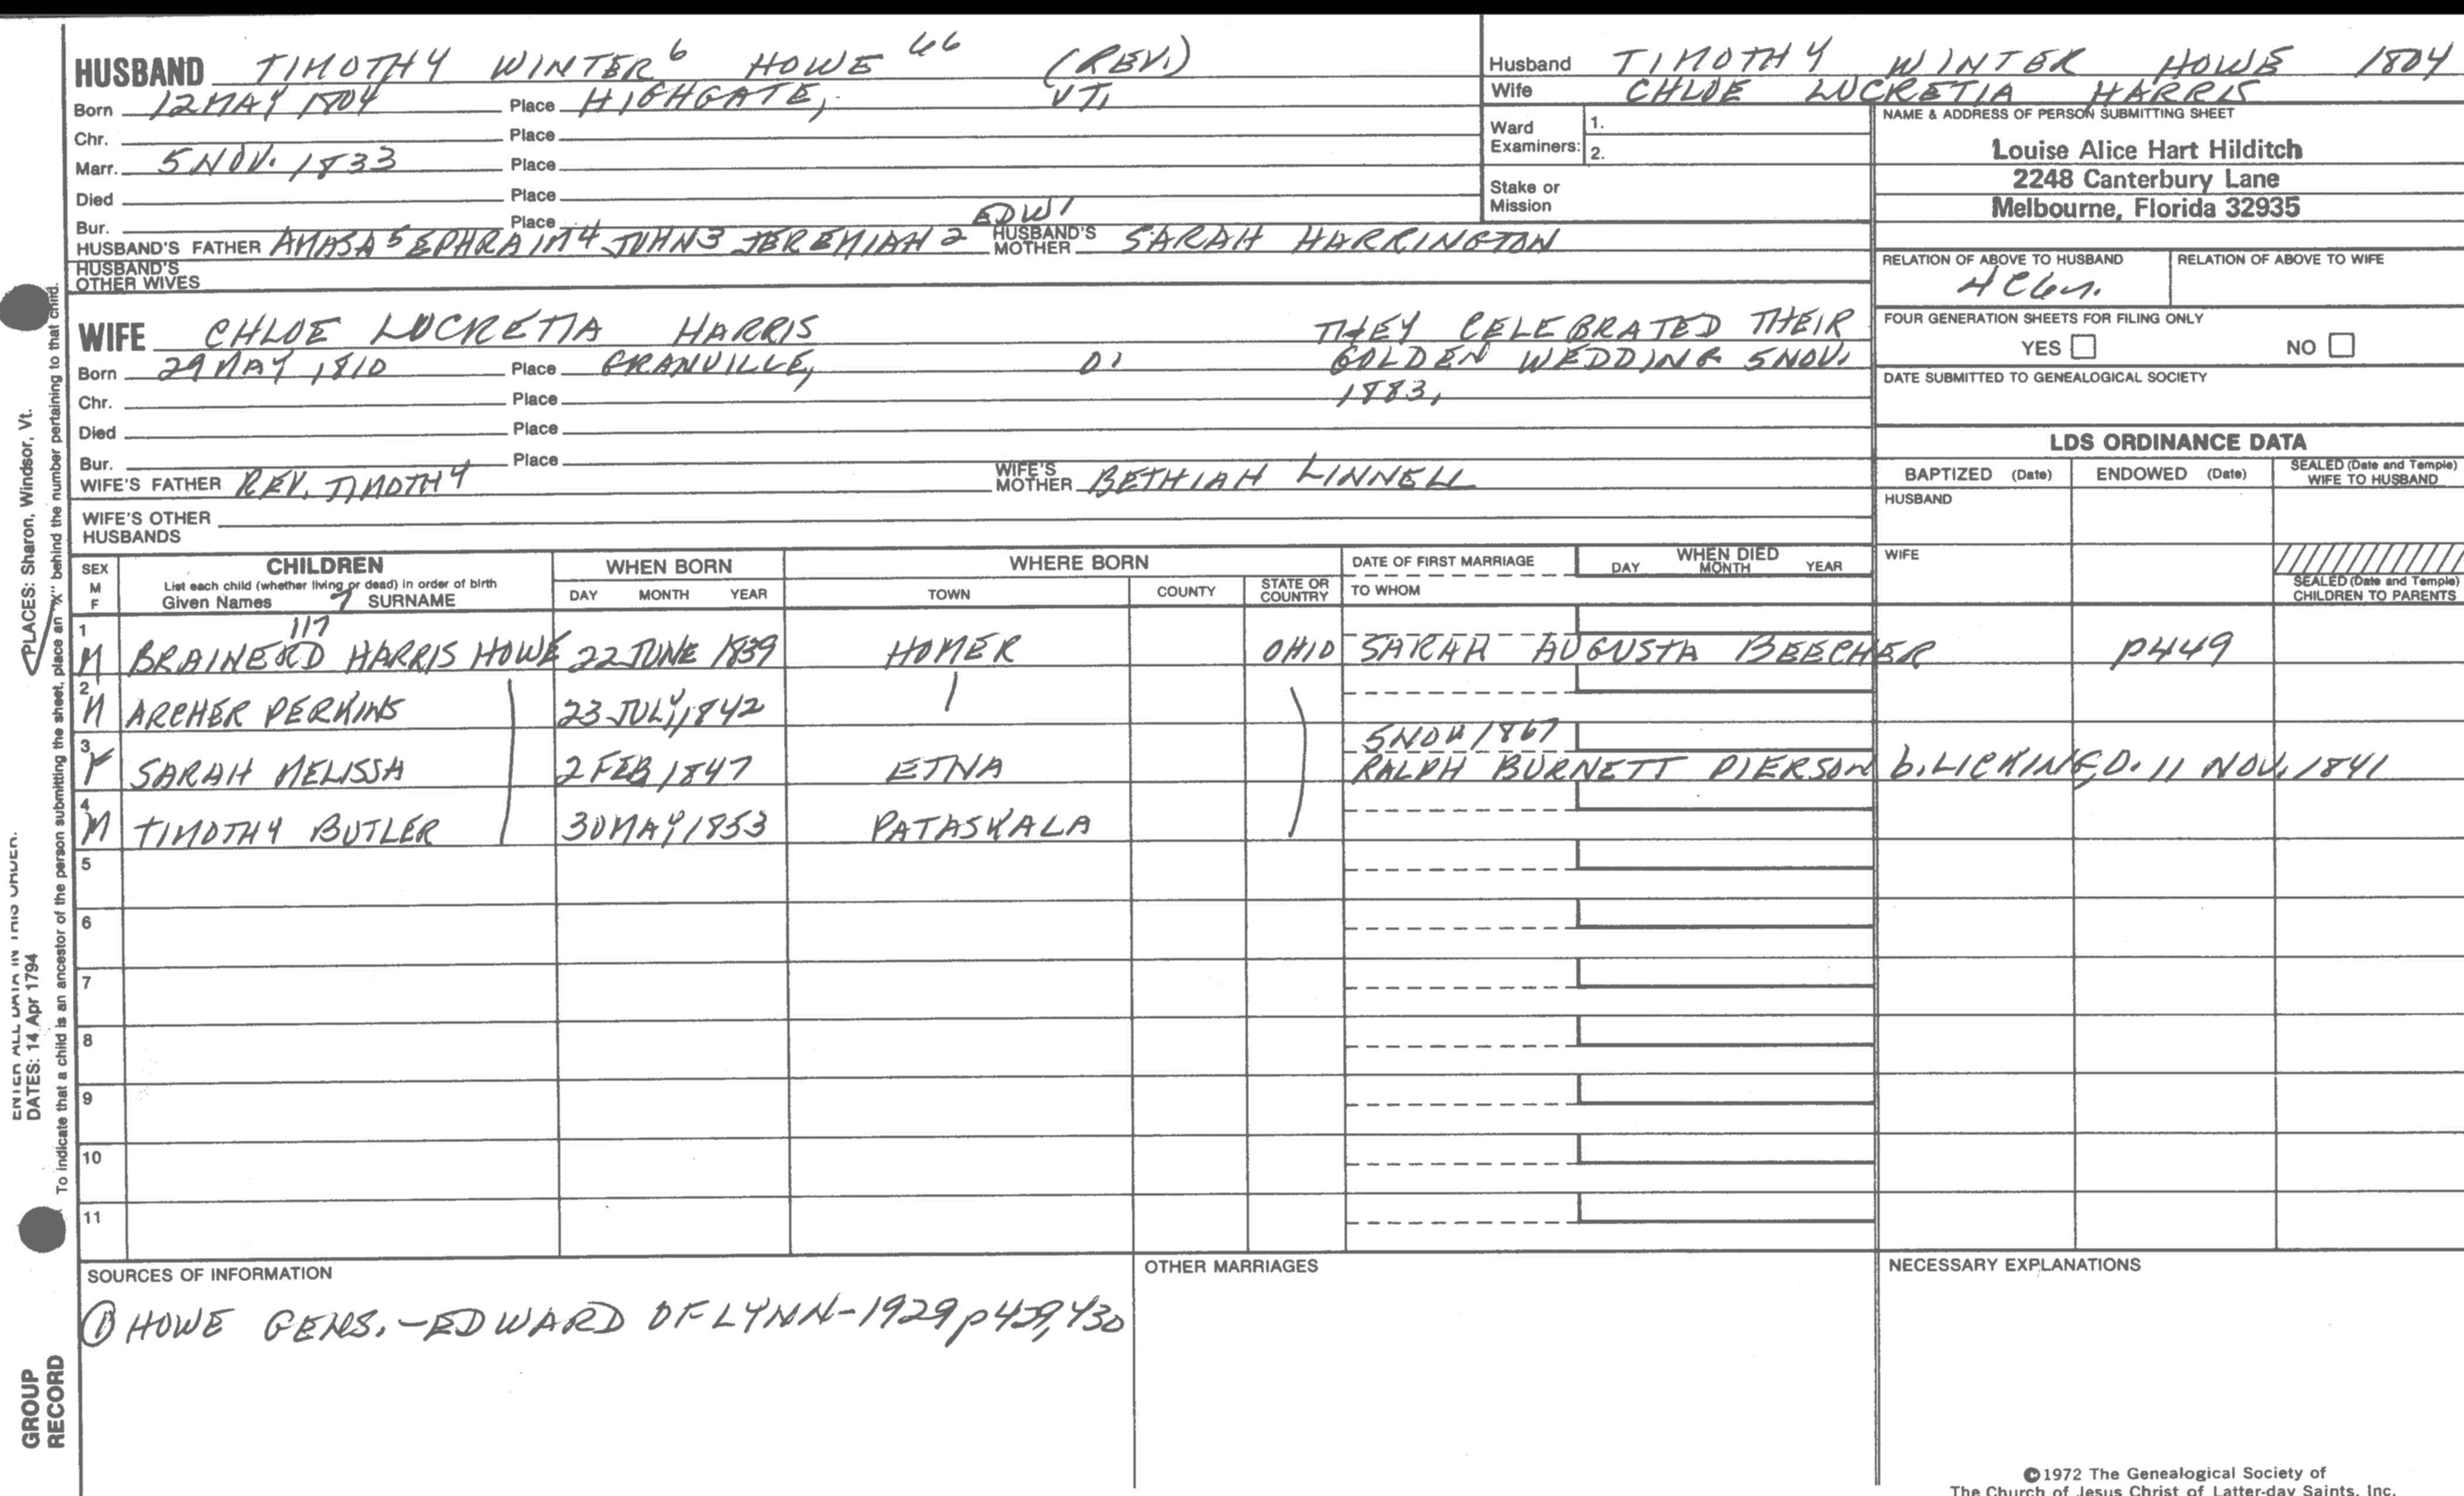 HUSBAND TIMOTHY WINTER 6 HOWE 66 (REV.)
Born 12 MAY 1804 Place HIGHGATE, VT.
Chr. Place
Marr. 5 NOV. 1833 Place
Died Place
Bur. Place
HUSBAND'S FATHER AMASA 5 EPHRAIM 4 JOHN 3 JEREMIAH 2 EDW 1 HUSBAND'S MOTHER SARAH HARRINGTON
HUSBAND'S OTHER WIVES
Husband TIMOTHY WINTER HOWE 1804
Wife CHLOE LUCRETIA HARRIS
Ward Examiners: 1.
2.
Stake or Mission
NAME & ADDRESS OF PERSON SUBMITTING SHEET
Louise Alice Hart Hilditch
2248 Canterbury Lane
Melbourne, Florida 32935
RELATION OF ABOVE TO HUSBAND RELATION OF ABOVE TO WIFE
FOUR GENERATION SHEETS FOR FILING ONLY
YES NO
DATE SUBMITTED TO GENEALOGICAL SOCIETY
WIFE CHLOE LUCRETIA HARRIS THEY CELEBRATED THEIR
Born 29 MAY 1810 Place GRANVILLE, O. GOLDEN WEDDING 5 NOV.
1883.
Chr. Place
Died Place
Bur. Place
WIFE'S FATHER REV. TIMOTHY WIFE'S MOTHER BETHIAH LINNELL
WIFE'S OTHER HUSBANDS
LDS ORDINANCE DATA
BAPTIZED (Date) ENDOWED (Date) SEALED (Date and Temple) WIFE TO HUSBAND
HUSBAND
WIFE
SEALED (Date and Temple) CHILDREN TO PARENTS
SEX M F CHILDREN WHEN BORN WHERE BORN DATE OF FIRST MARRIAGE WHEN DIED
List each child (whether living or dead) in order of birth
Given Names 7 SURNAME DAY MONTH YEAR TOWN COUNTY STATE OR COUNTRY TO WHOM DAY MONTH YEAR
117
1 M BRAINERD HARRIS HOWE 22 JUNE 1839 HOMER OHIO SARAH AUGUSTA BEECHER P449
2 M ARCHER PERKINS 23 JULY 1842
5 NOV 1867
3 F SARAH MELISSA 2 FEB 1847 ETNA RALPH BURNETT PIERSON b. LICKING, O. 11 NOV. 1841
4 M TIMOTHY BUTLER 30 MAY 1853 PATASKALA
5
6
7
8
9
10
11
SOURCES OF INFORMATION
① HOWE GENS. - EDWARD OF LYNN - 1929 p429, 430
OTHER MARRIAGES
NECESSARY EXPLANATIONS
©1972 The Genealogical Society of
The Church of Jesus Christ of Latter-day Saints, Inc.
PLACES: Sharon, Windsor, Vt.
ENTER ALL DATA IN THIS ORDER.
DATES: 14 Apr 1794
To indicate that a child is an ancestor of the person submitting the sheet, place an "X" behind the number pertaining to that child.
GROUP RECORD